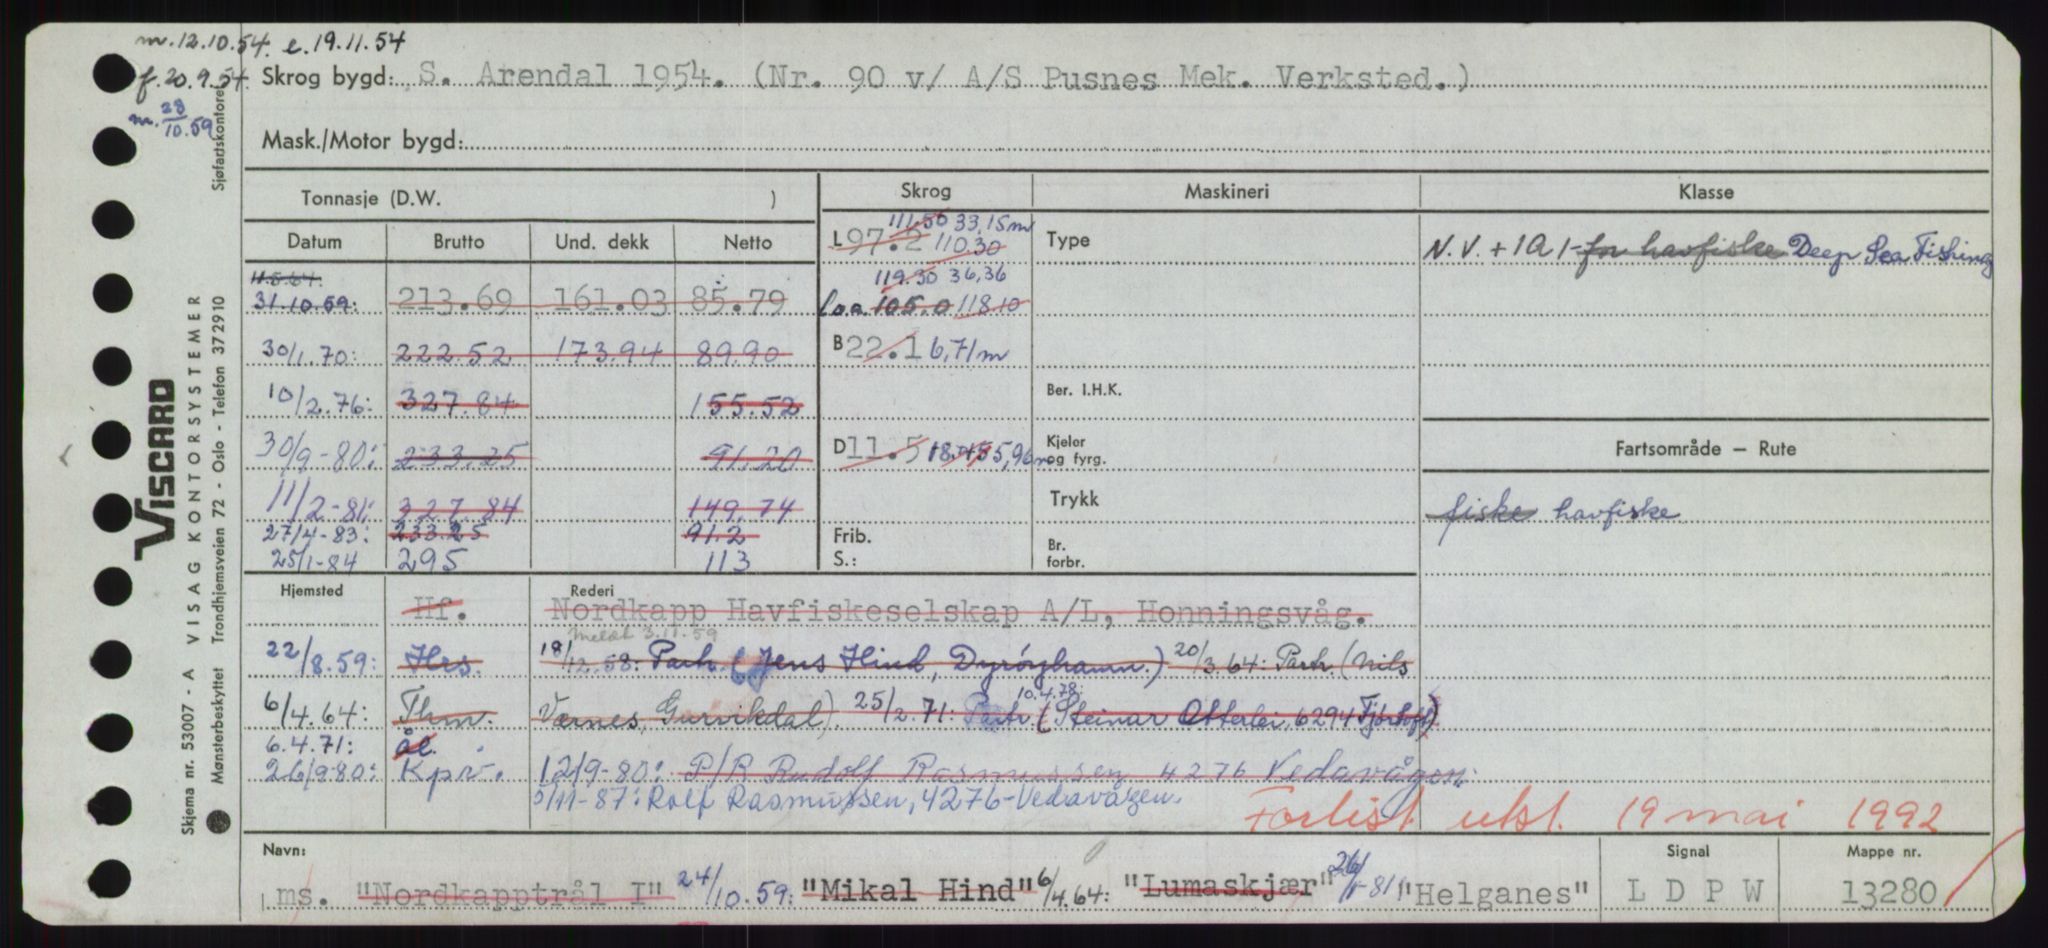 m. 12.10.54. e. 19.11.54
f. 20.9.54. Skrog bygd: S. Arendal 1954. (Nr. 90 v/ A/S Pusnes Mek. Verksted.)
m. 28/10.59
Mask./Motor bygd:
Tonnasje (D.W. ) Skrog Maskineri Klasse
Datum Brutto Und. dekk Netto
L 97.2 111.50 33,15m 110.30 Type N.V. + 1A1 - for havfiske Deep Sea Fishing
11.5.64.
31.10.59: 213.69 161.03 85.79 119.30 36,36
Loa 105.0 118.10
30/1.70: 222.52 173.94 89.90 B 22.1 6,71m
10/2.76: 327.84 155.52 Ber. I.H.K.
30/9-80: 233.25 91.20 D 11.5 5,96m Kjeler og fyrg. Fartsområde – Rute
11/2-81: 327.84 149.74 Trykk fiske havfiske
27/4-83: 233.25 91.2 Frib. Br. forbr.
25/1-84 295 113 S.:
Hjemsted Rederi
Hf. Nordkapp Havfiskeselskap A/L, Honningsvåg.
Meldt 3.11.59
22/8.59: Hrs. 18/12.58: Partr. (Jens Hind, Dyrøyhamn.) 20/3.64: Partr. (Nils
6/4.64: Thm. Værnes, Gurvikdal). 25/2.71: Partr. 10.4.78: (Steinar Otterlei, 6294 Fjørtoft)
6.4.71: ål.
26/9-80: Kprv. 12/9-80: P/R Rudolf Rasmussen 4276 Vedavågen.
5/11-87: Rolf Rasmussen, 4276-Vedavågen.
Forlist utsl. 19 mai 1992
Navn: Signal Mappe nr.
ms. "Nordkapptrål I" 24/10.59: "Mikal Hind" 6/4.64: "Lumaskjær" 26/1-81: "Helganes" LDPW 13280
VISCARD
VISAG KONTORSYSTEMER
Skjema nr. 53007 - A
Mønsterbeskyttet Trondhjemsveien 72 - Oslo - Telefon 372910 Sjøfartskontoret